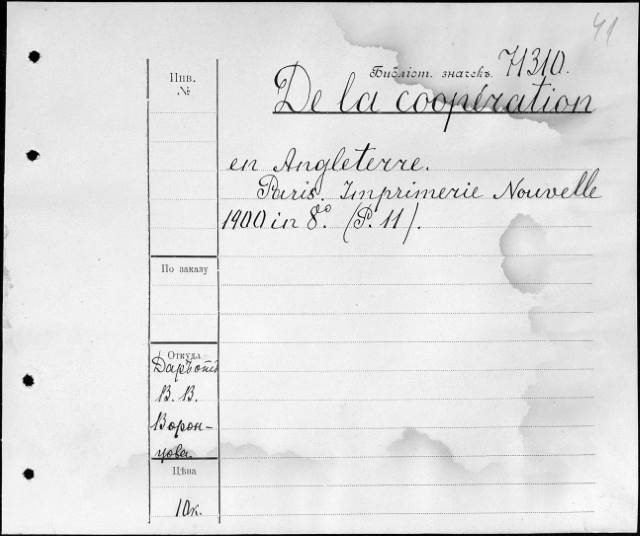 41
Инв.
№
Библіот. значекъ. 71310.
De la coopération
en Angleterre.
Paris. Imprimerie Nouvelle
1900 in 8º. (P. 11).
По заказу
Откуда
Даръ отъ
В. В.
Ворон-
цова
Цѣна
10к.